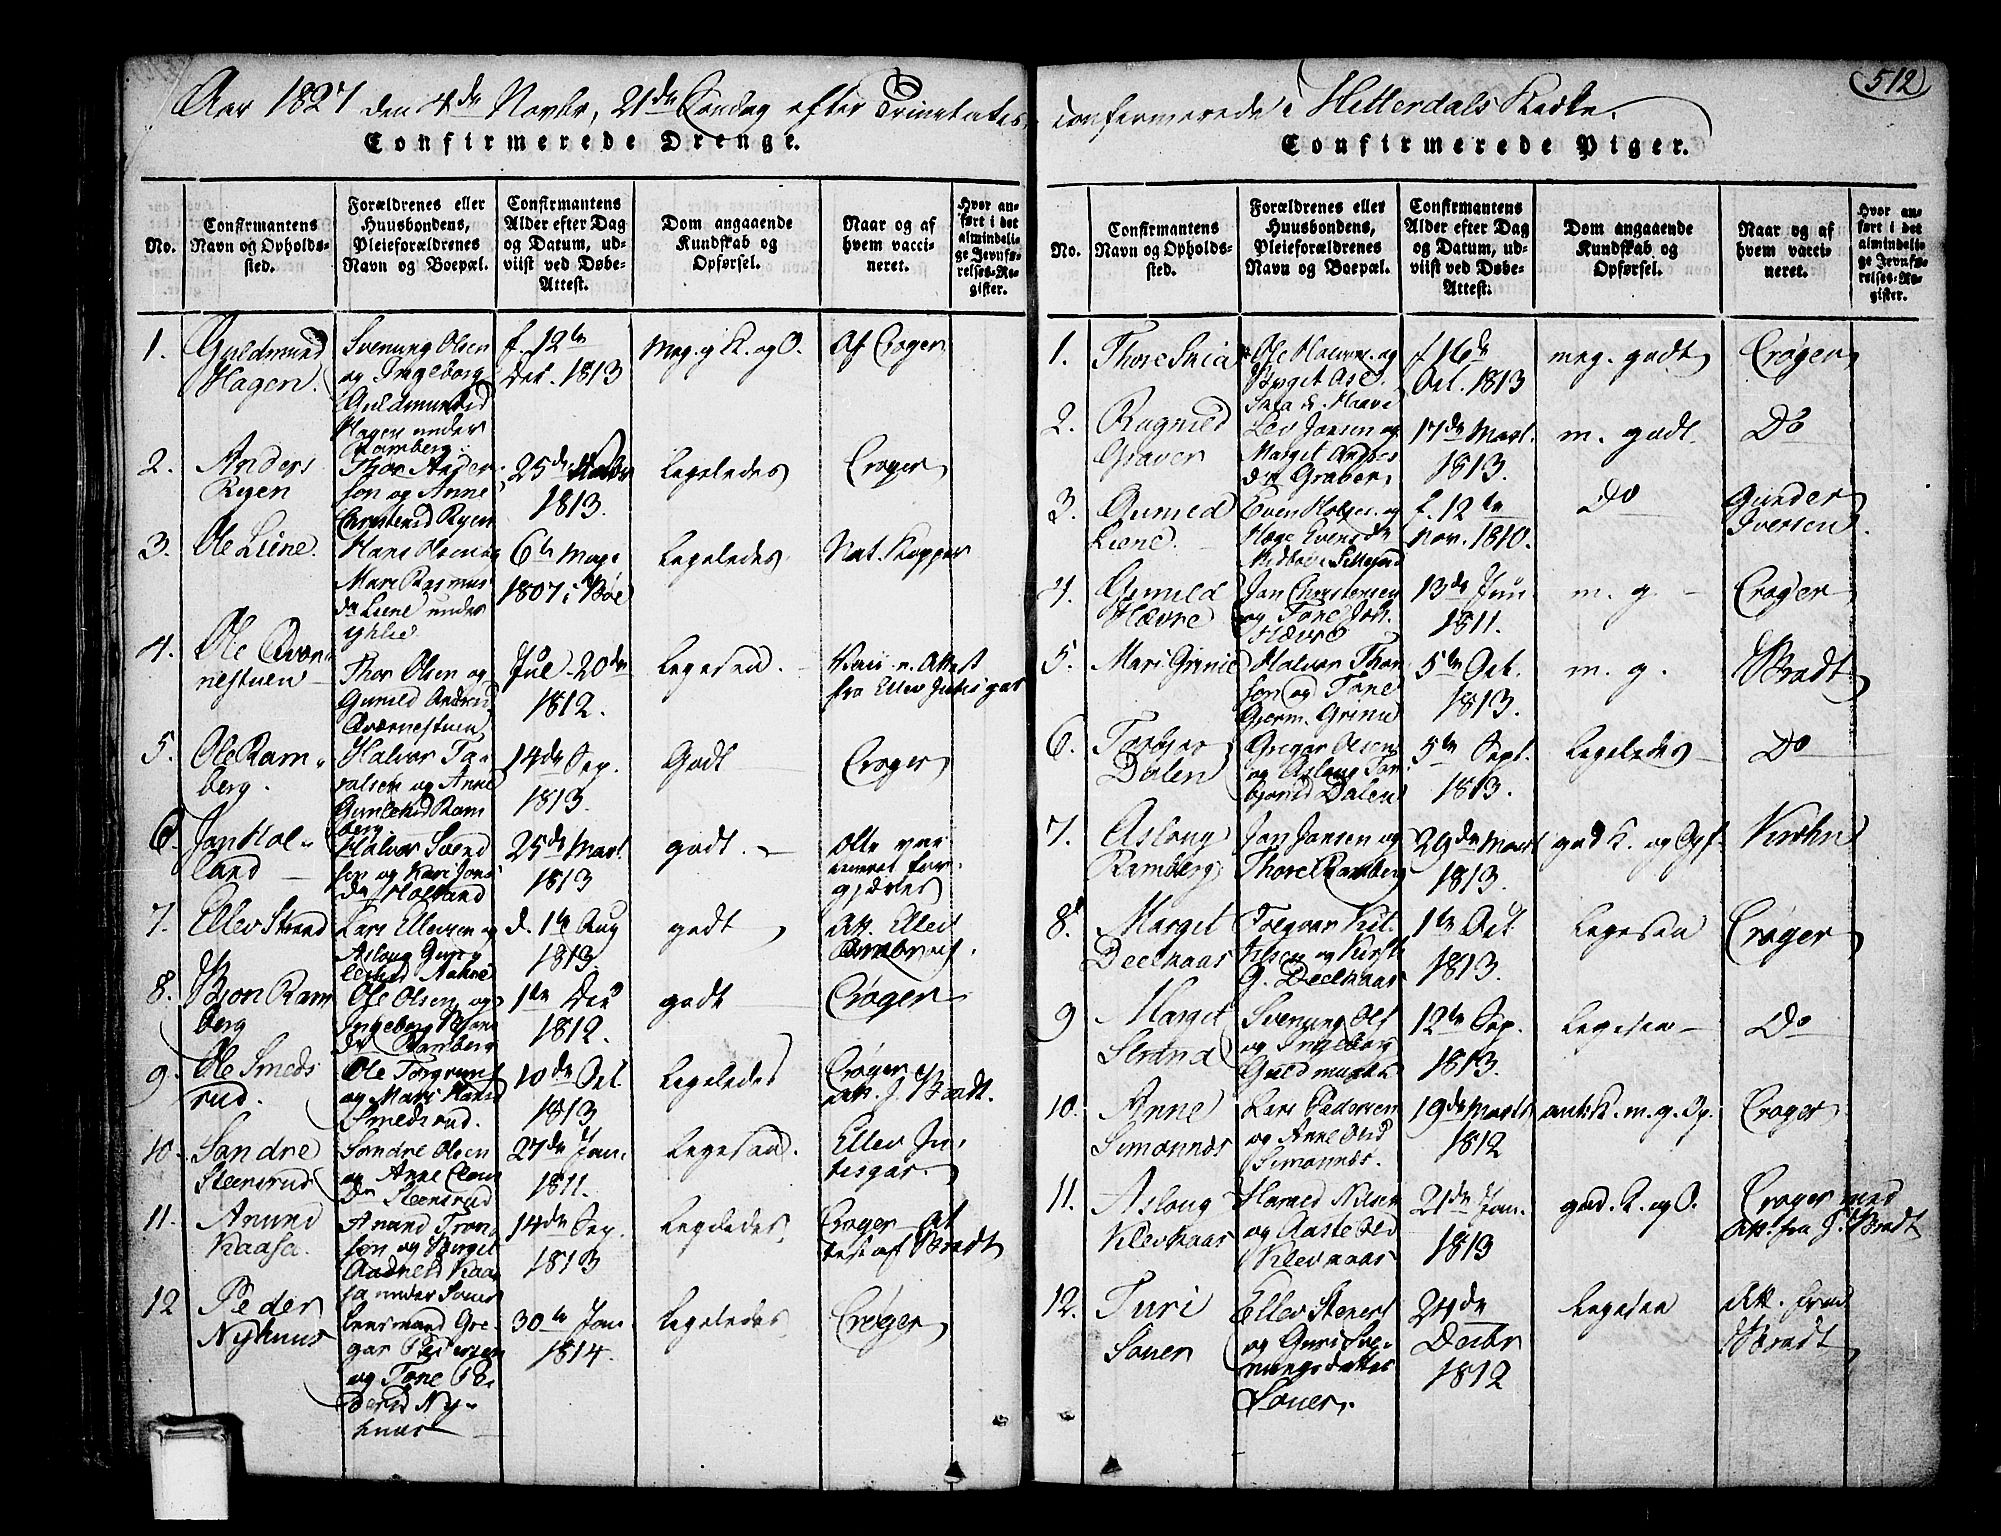 Aar 1827 den 4de Novbr, 21de Søndag efter Trinitatis,
Confirmerede Drenge.
No.
Confirmantens Navn og Opholdssted.
Forældrenes eller Huusbondens, Pleieforældrenes Navn og Boepæl.
Confirmantens Alder efter Dag og Datum, udviist ved Døbe-Attest.
Dom angaaende Kundskab og Opførsel.
Naar og af hvem vaccineret.
Hvor anført i det almindelige Jevnførelses-Register.
1.
Guldmund
Hagen.
Svenung Olsen
og Ingeborg
Guldmundsd
Hagen under
Ramberg.
f. 12te
Dec. 1813
Meg. g. K. og O.
Af Crøger
2.
Anders
Ryen
Thor Anders
søn og Anne
Christensd Ryen
25de
1813.
Ligeledes
Crøger
3.
Ole Liene.
Hans Olsen og
Mari Rasmus
dr Liene under
6te May
1807 i Bøe
Ligeledes
Nat. Kopper
4.
Ole Qvær-
nestuen
Thor Olsen og
Gunild
Qværnestuen
Jul. 20de
1812.
Ligesaa.
Vacc. n. Attest
fra Ellev Jutisgar
5.
Ole Ram-
berg.
Halvor Ta-
ralsen og Anne
Gunleksd Ram
berg.
14de Sep.
1813.
Godt
Crøger
6.
Jan Hol-
land
Halvor Svend
søn og Kari Jons
dr Holland
25de Mart.
1813
godt.
7.
Ellev Strand
Lars Ellevsen og
Asloug
d. 1te Aug
1813
godt
Att. Ellev
8.
Bjøn Ram
berg
Ole Olsen og
Ingeborg
dr Ramberg
1te Dec
1812.
godt
Crøger
9.
Ole Smeds
rud.
Ole Torgrims
og Mari Hansd
Smedsrud.
10de Oct.
1813
Ligeledes
Crøger
Att. J. Bradt.
10.
Søndre
Steensrud
Søndre Olsen
og Anne Clem
dr Steensrud
27de Jan.
1811.
Ligesaa.
Ellev Ju-
tisgar.
11.
Anund
Kaasa.
Anund Tron
søn og Birgit
Kaa
sa under Souer
14de Sep.
1813
Ligeledes
Crøger At
test af Bradt
12
Peder
Nyhuus
Lensmand Gre-
gar Pedersen
og Tone Pe
dersd Ny-
huus
30te Jan.
1814.
Ligeledes
Crøger
512
confirmerede i Hitterdals Kirke.
Confirmerede Piger.
No.
Confirmantens Navn og Opholdssted.
Forældrenes eller Huusbondens, Pleieforældrenes Navn og Boepæl.
Confirmantens Alder efter Dag og Datum, udviist ved Døbe-Attest.
Dom angaaende Kundskab og Opførsel.
Naar og af hvem vaccineret.
Hvor anført i det almindelige Jevnførelses-Register.
1.
Thore
Ole Halvors. og
Birgit
f 16de
Oct. 1813
meg. godt
Crøger
2.
Ragnild
Graver
Lev Jansen og
Margit Anders
dr Graver
17de Mart.
1813.
m. godt.
Do
3.
Gunild
Liene.
Even og
Hæge Evensdr
f. 12te
Nov. 1810.
Do
Gunder
Iversen
4.
Gunild
Hævre
Jon Christensen
og Tone Joh.
Hævre
13de Jun
1811.
m. g.
Crøger
5.
Mari Grinie
Halvor Thor
søn og Tone
Gierm. Grinie
5te Oct.
1813.
m. g.
Bradt
6.
Torbjør
Dalen
Gregar Olsen
og Asloug Tor
bjørnsd Dalen
5te Sept.
1813.
Ligeledes
Do
7.
Asloug
Ramberg
Jon Jansen og
Thore Ramberg
29de Mart
1813.
god K. og Opf.
8.
Margit
Deelkaas
Tolgvar Kit.
ilsen og Kirsti
G. Deelkaas
1te Oct.
1813.
Ligesaa
Crøger
9
Margit
Strand
Svenung Ols
og Ingeborg
Guldmunds.
12te Sep.
1813.
Ligesaa
Do
10.
Anne
Simonnæs
Lars Pedersen
og Anne Olsd
Simonnæs.
19de Marts
1812
K. m. g. Op.
Crøger
11.
Asloug
Klevkaas
Harald Nilsen
og Aaste Old
Klevkaas
21de Jan.
1813
god. K. og O.
Crøger med
Att. fra J. Bradt
12.
Turi
Souer
Ellev Steners
og Guri Sve-
nungsdatter
Souer.
24de
Decbr
1812
Ligesaa
Att. fra
Bradt